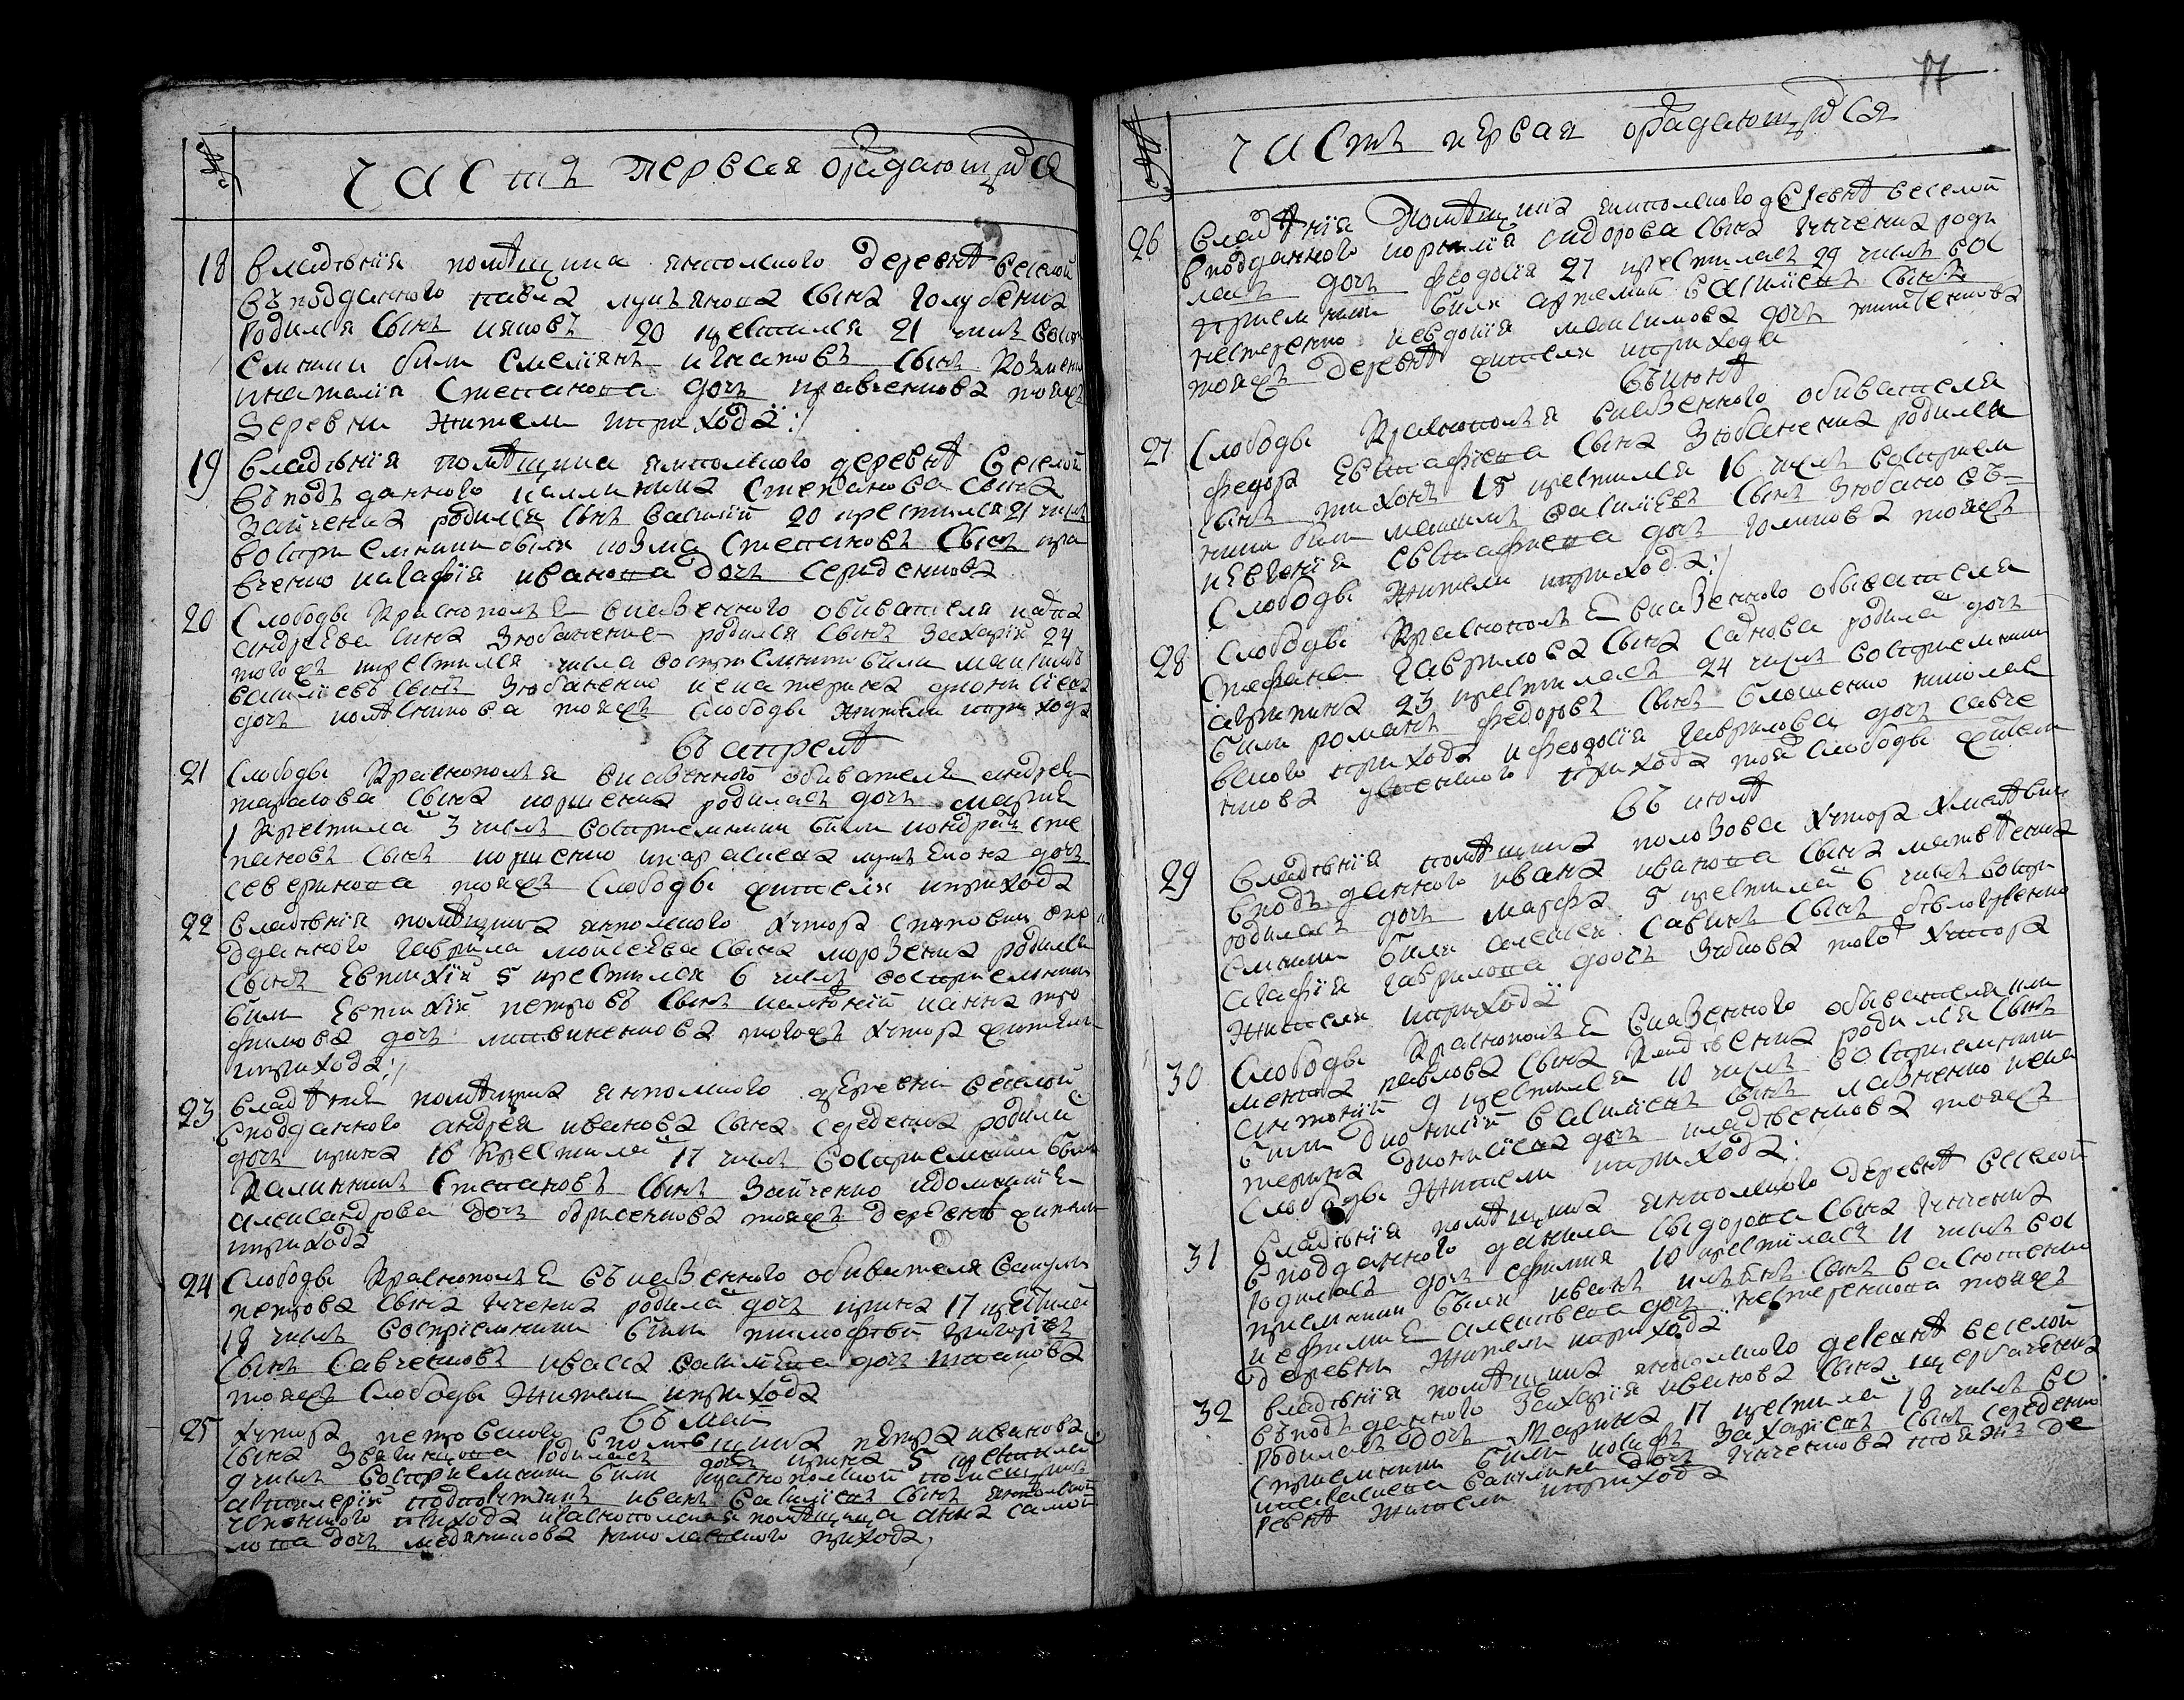 №
часть первая ораждающихся
18 владѣнія помѣщика ямполского деревнѣ веселой
въподданного павла лукянова сына голубенка
родился сынъ яковъ 20 крестился 21 числа воспри
емники били емелиянъ игнатовъ сынъ козменко
инаталія степанова дочъ кравченкова тояжъ
деревни жители прихода
19 владѣнія помѣщика ямполского деревнѣ веселой
въподъданного калиника степанова сына
зайченка родился сынъ василій 20 крестился 21 числа
восприемники были козма степановъ сынъ кра
вченко иагафія иванова дочъ середенкова
20 слободы краснополя въказенного обивателя
андреева сина зюбаненка родился сынъ захарій 24
тогожъ крестился числа восприемники били максимъ
василіевъ сынъ зюбаненко иекатерина дионисіева
дочъ тояжъ слободы жители прихода
въ апрелѣ
21 слободы краснополя вказенного обивателя андрея
тарасова сына коршенка родиласъ дочъ марія
1 крестилась 3 числа восприемники били кондрат сте
пановъ сынъ коршенко ипараскева лукянова дочъ
северинова тояжъ слободы жителя прихода
22 владѣнія помѣщика ямполского хутора впо
дданного гаврила мойсеева сына морозенка родился
сынъ евтихій 5 крестился 6 числа восприемники
били евтихій петровъ сынъ ианна тро
фимова дочъ литвиненкова тогожъ хутора жители
прихода
23 владѣния помѣщика ямполского деревни веселой
вподданного андрея иванова сына середенка родилась
дочъ ирина 16 крестилась 17 числа восприемники были
калинникъ степановъ сынъ зайченко идомникия
александрова дочъ борисенкова тояжъ деревнѣ жители
прихода
24 слободы краснополя въказенного обивателя
петрова сына ткченка родилась дочъ ирина 17 крестилась
18 числа восприемники били тимофѣй григоріевъ
сынъ савченковъ ивасса василиева дочъ
тояжъ слободы жители прихода
въ маи
25 хутора петровского впомѣщика петра иванова
сына родиласъ дочъ ирина 5 крестилась
9 числа восприемники били краснополской помещикъ
артилеріи подпоручикъ иванъ василіевъ сынъ
прихода краснополская помѣщица анна самой
лова дочъ николаевского прихода

17
№
часть первая ораждающихся
26 владѣнія помѣщика ямполского деревнѣ веселой
вподданного корнилія сидорова сына ткченка роди
ласъ дочъ феодосія 27 крестиласъ 29 числа вос
приемники били артемий василиевъ сынъ
нестеренко иевдокія максимова дочъ
тояжъ деревнѣ жителя прихода
въиюнѣ
27 слободы краснополя вказенного обивателя
федора евстафіева сына зюбаненка родился
сынъ тихонъ 15 крестился 16 числа восприем
ники били максимъ василіевъ сынъ зюбаненко
иевгения евстафиева дочъ тояжъ
слободы жители прихода
28 слободы краснополя вказенного обивателя
стефана гаврилова сына саднова родилась дочъ
агрипина 23 крестиласъ 24 числа восприемники
били романъ федоровъ сынъ блошенко николае
вского прихода ифеодосія гаврилова дочъ савче
нкова успенского прихода той слободы жители
въ июлѣ
29 владѣнія помѣщика полозова хутора
вподъданного ивана иванова сына матвѣенка
родиласъ дочъ марфа 5 крестилась 6 числа воспри
емники били алексея савинъ сынъ
агафія гаврилова дочъ зубкова того хутора
жителя прихода
30 слободы краснополя вказенного обивателя кли
мента павлова сына родился сынъ
антоній 9 крестился 10 числа восприемники
били дионисій василиевъ сынъ лазненко иека
терина дионисіева дочъ тояжъ
слободы жители прихода
31 владѣнія помѣщика ямполского деревнѣ веселой
вподданного данила сидорова сына ткченка
родиласъ дочъ ефимия 10 крестилася 11 числа вос
приемники были иванъ сынъ василшенко
иефимия алексѣева дочъ нестеренкова тояжъ
деревни жители прихода
32 владѣнія помѣщика ямполского деревнѣ веселой
въподъданного захарія иванова сына щербаченка
родиласъ дочъ марина 17 крестилась 18 числа во
сприемники били иосифъ захаріевъ сынъ середенко
дочъ ткченкова тояжъ де
ревнѣ жители прихода